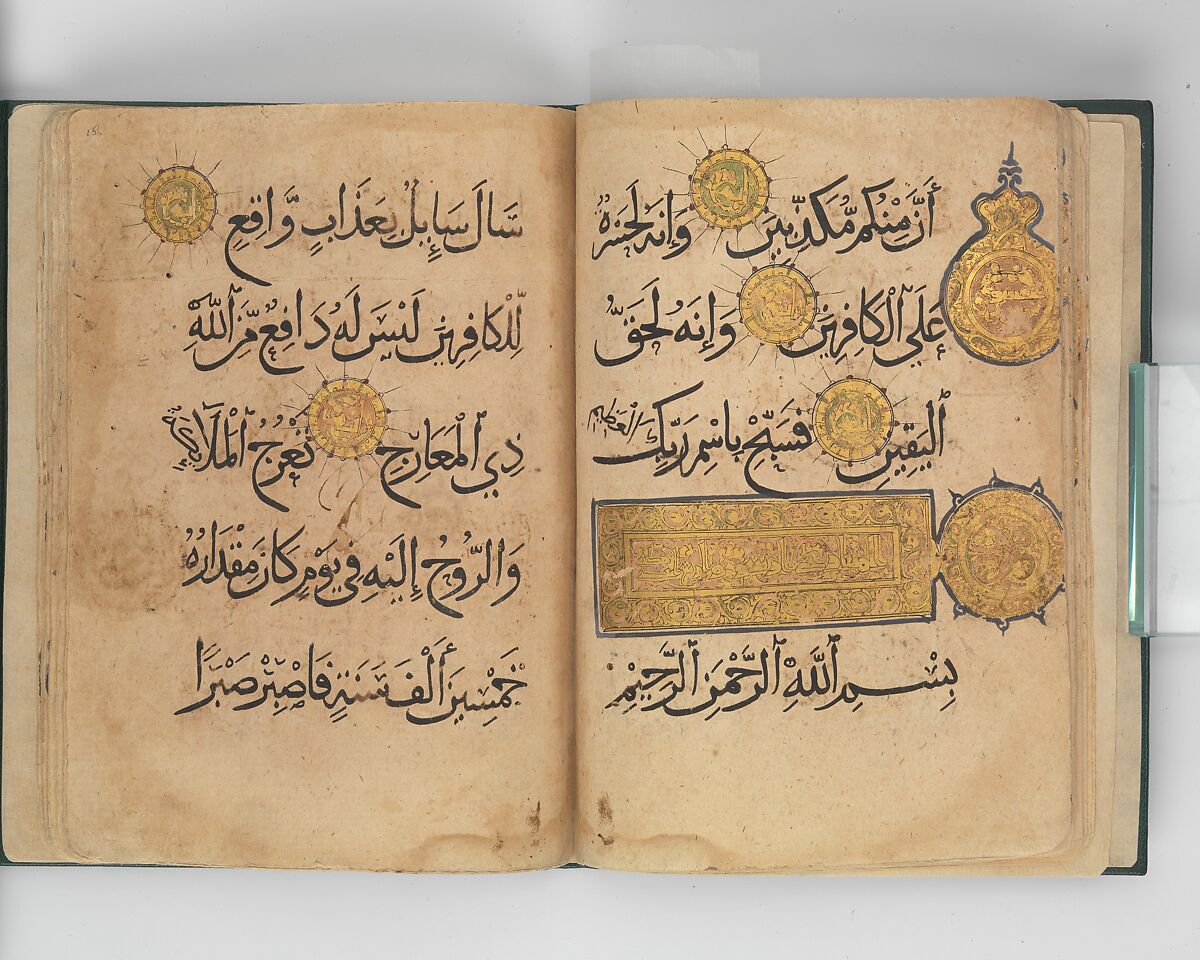 أَنَّ مِنْكُم مُّكَذِّبِينَ وَإِنَّهُ لَحَسْرَةٌ
عَلَى ٱلْكَافِرِينَ وَإِنَّهُ لَحَقُّ
ٱلْيَقِينِ فَسَبِّحْ بِاسْمِ رَبِّكَ الْعَظِيمِ
بِسْمِ ٱللَّهِ ٱلرَّحْمَٰنِ ٱلرَّحِيمِ
سَالَ سَايِلٌ بِعَذَابٍ وَّاقِعٍ
لِّلْكَافِرِينَ لَيْسَ لَهُ دَافِعٌ مِّنَ ٱللَّهِ
ذِي ٱلْمَعَارِجِ تَعْرُجُ ٱلْمَلَائِكَةُ
وَالرُّوحُ إِلَيْهِ فِي يَوْمٍ كَانَ مِقْدَارُهُ
خَمْسِينَ أَلْفَ سَنَةٍ فَاصْبِرْ صَبْرًا